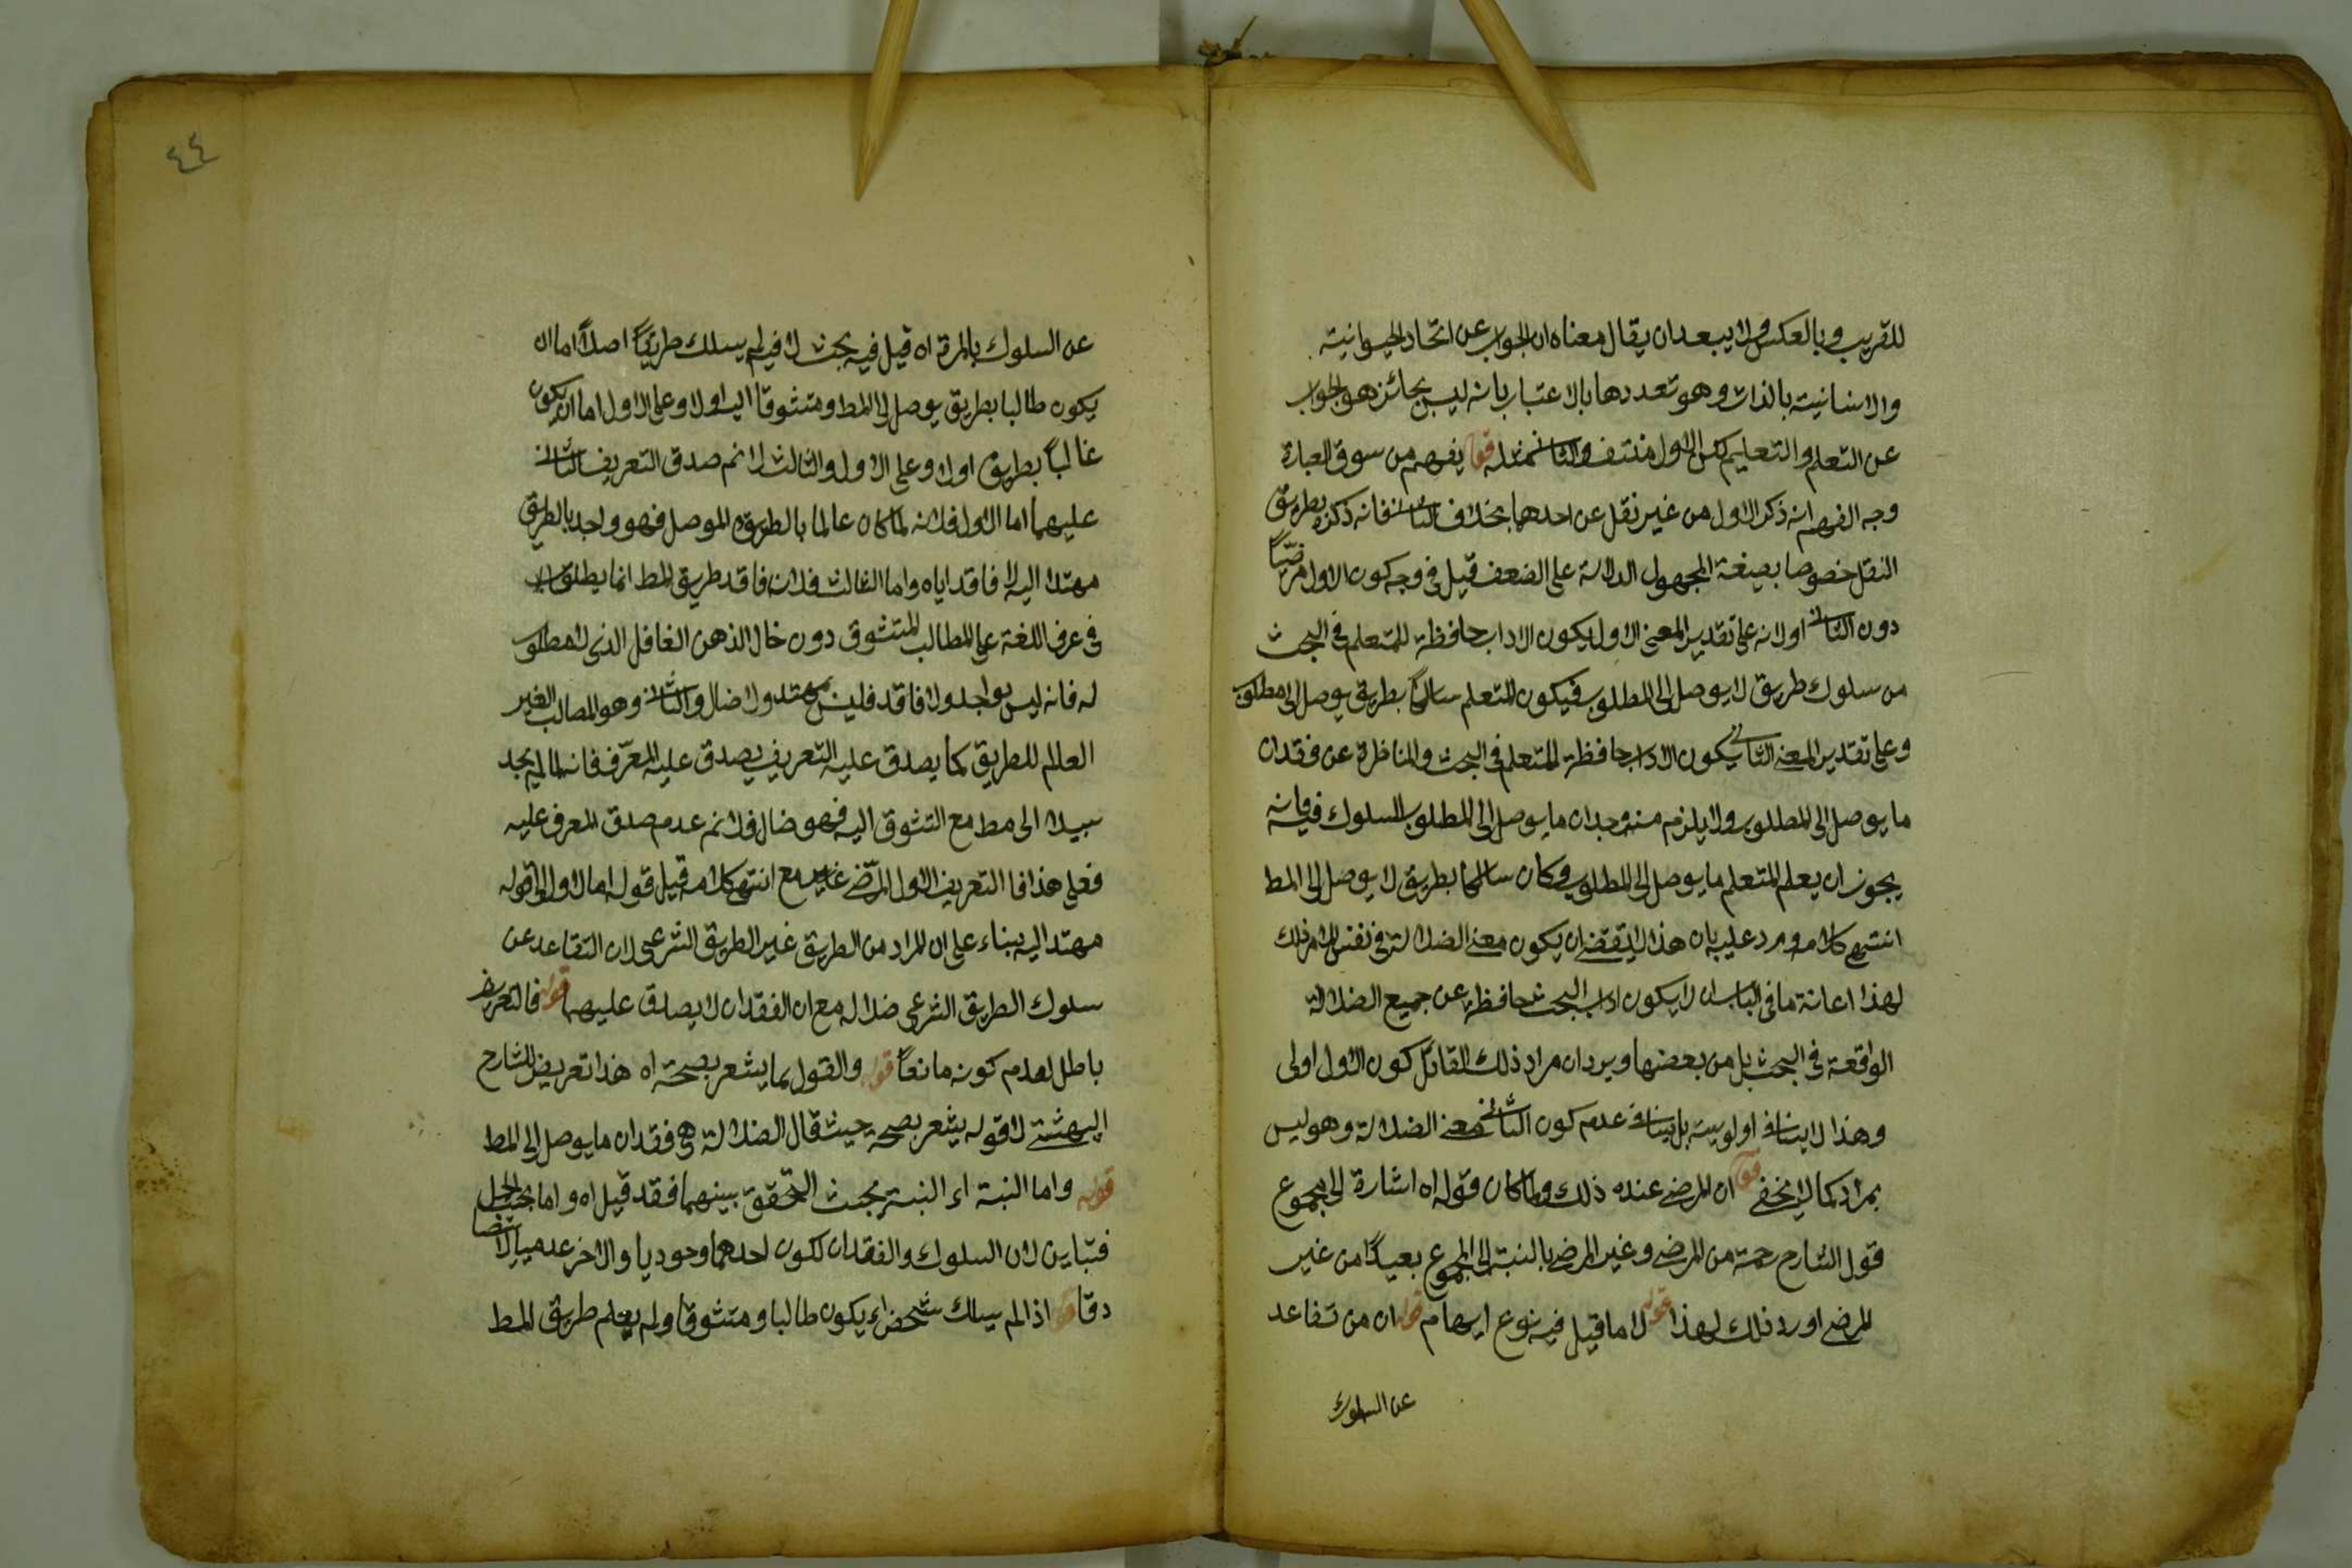 للقريب وبالعكس ولا يبعد ان يقال معناه ان الجواب عن اتحاد الحيوانية
والانسانية بالذات وهو تعددها بالاعتبار بانه ليس بجائز هو الجواب
عن التعلم والتعليم لكن الاول منتف والثانى مثله قوله يفهم من سوق العبارة
وجه الفهم انه ذكر الاول من غير نقل عن احدهما بخلاف الثانى فانه ذكره بطريق
النقل خصوصا بصيغة المجهول الدالة على الضعف قيل فى وجه كون الاول مرضيًا
دون الثانى اولانه على تقدير المعنى الاول يكون الاداب حافظة للمتعلم فى البحث
من سلوك طريق لا يوصل الى المطلوب فيكون المتعلم سالكًا بطريق يوصل الى مطلوب
وعلى تقدير المعنى الثانى يكون الاداب حافظة للمتعلم فى البحث والمناظرة عن فقدان
ما يوصل الى المطلوب ولا يلزم منه وجدان ما يوصل الى المطلوب السلوك فيه فانه
يجوز ان يعلم المتعلم ما يوصل الى المطلوب وكان سالكا بطريق لا يوصل الى المط
انتهى كلامه ويرد عليه بان هذا لا يقتضى ان يكون معنى الضلالة فى نفس الامر ذلك
لهذا اعانة ما فى الباب ان لا يكون اداب البحث حافظة عن جميع الضلالة
الواقعة فى البحث بل من بعضها ويرد ان مراد ذلك القائل كون الاول اولى
وهذا لا ينافى اولويته بل ينافى عدم كون الثانى معنى الضلالة وهو ليس
بمراد كما لا يخفى قوله ان المرضى عنده ذلك ولما كان قوله اه اشارة الى مجموع
قول الشارح رحمة من المرضى وغير المرضى بالنسبة الى المجموع بعيدًا من غير
المرضى اورد ذلك لهذا قوله لا ما قيل فيه نوع ايهام قوله ان من تقاعد
عن السلوك
٤٤
عن السلوك بالمرة اه قيل فيه بحث لا فيلم يسلك طريقًا اصلًا اما ان
يكون طالبا بطريق يوصل الى المط ومتشوقا اليه اولا وعلى الاول اما ان يكون
غالبًا بطريق اولا وعلى الاول والثالث لا نم صدق التعريف الثانى
عليهما اما الاول فلانه لما كان عالما بالطريق الموصل فهو واجد بالطريق
مهتد اليه لا فاقد اياه واما الثالث فلانه فاقد طريق المط انما يطلق
فى عرف اللغة على المطالب المتشوق دون خال الذهن الغافل الذى لا مطلوب
له فانه ليس بواجد ولا فاقد فليس بمهتد ولا ضال والثانى وهو المصالب الغير
العالم للطريق كما يصدق عليه التعريف يصدق عليه المعرّف فانه لما لم يجد
سبيلا الى مط مع التشوق اليه فهو ضال فلا نم عدم صدق المعرف عليه
فعلى هذا فا التعريف الاول المرضى غير مع انتهى كلامه قيل قوله اما الاول الى قوله
مهتد اليه بناء على ان المراد من الطريق غير الطريق الشرعى لان التقاعد عن
سلوك الطريق الشرعى ضلاله مع ان الفقدان لا يصدق عليهما قوله فالتعريف
باطل لعدم كونه مانعًا قوله والقول بما يشعر بصحته اه هذا تعريض للشارح
البهشتى لا قوله يشعر بصحته حيث قال الضلالة هى فقدان ما يوصل الى المط
قوله واما النسبة اى النسبة بحث التحقق بينهما فقد قيل اه واما بحسب الحمل
فتباين لان السلوك والفقدان لكون احدهما وجوديا والاخر عدميا لا تصا
دقا قوله اذا لم يسلك شخص اى يكون طالبا ومتشوقا ولم يعلم طريق المط